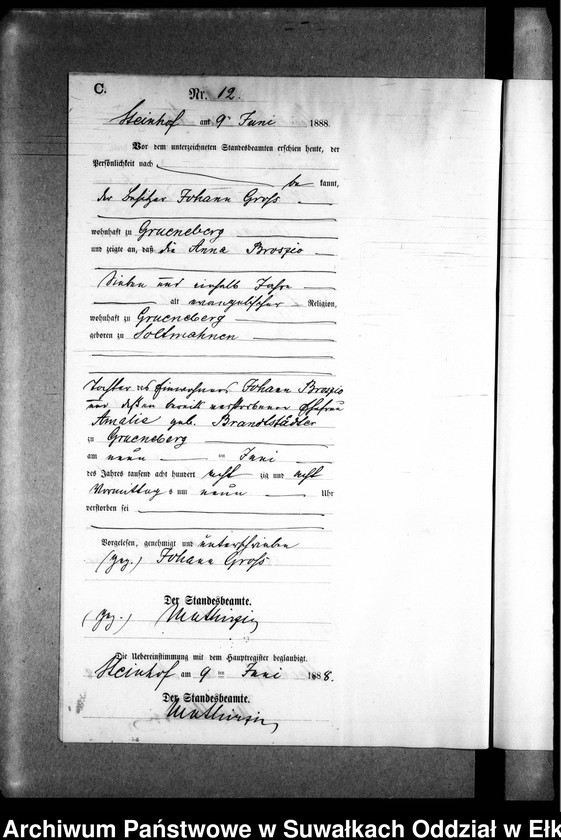 C.
Nr. 12.
Steinhof am 9 Juni 1888.
Vor dem unterzeichneten Standesbeamten erschien heute, der
Persönlichkeit nach
be kannt,
der Besitzer Johann Gross
wohnhaft zu Grueneberg
und zeigte an, daß die Anna Broszio
Sieben und einhalb Jahre
alt evangelischer Religion,
wohnhaft zu Grueneberg
geboren zu Soltmahnen
Tochter des Einwohners Johann Broszio
und dessen bereits verstorbener Ehefrau
Amalie geb. Brandtstädter
zu Grueneberg
am neun ten Juni
des Jahres tausend acht hundert acht zig und acht
Vormittag s um neun Uhr
verstorben sei
Vorgelesen, genehmigt und unterschrieben
(gez.) Johann Gross
Der Standesbeamte.
(gez.)
Die Uebereinstimmung mit dem Hauptregister beglaubigt.
Steinhof am 9 ten Juni 1888.
Der Standesbeamte.
Archiwum Państwowe w Suwałkach Oddział w Ełk